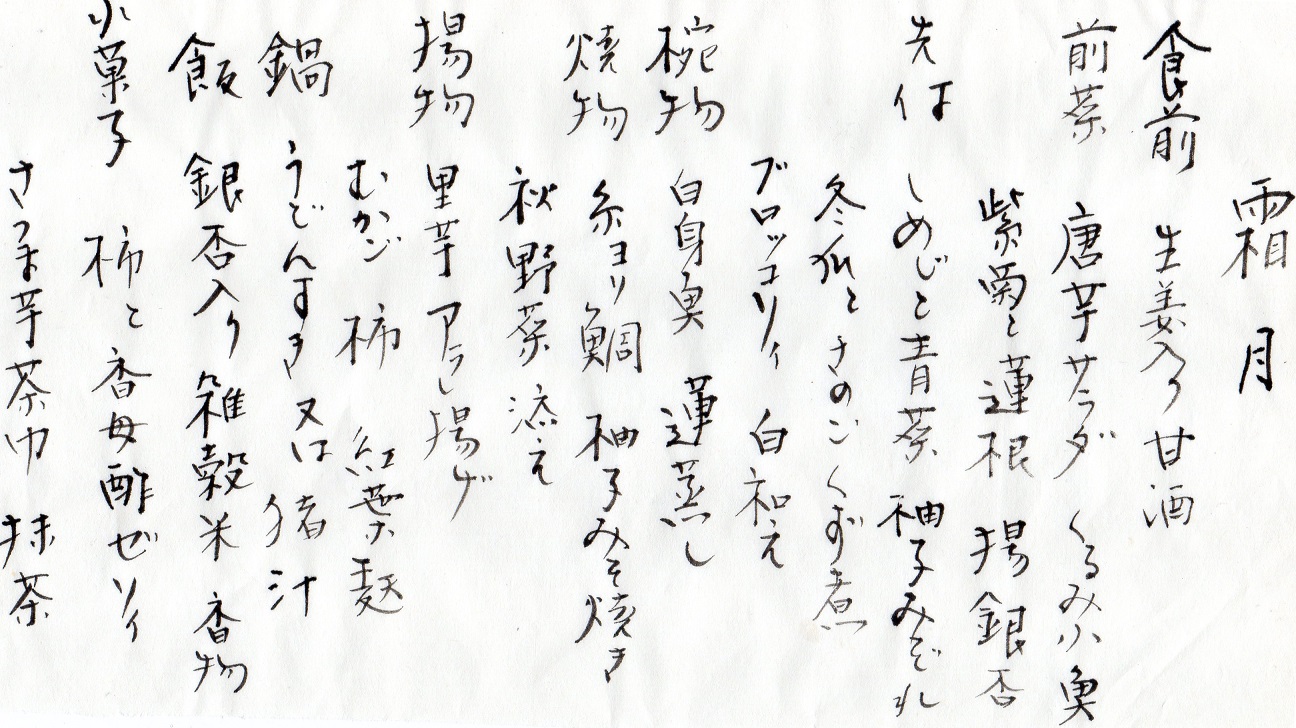 霜月
食前 生姜入り甘酒
前菜 唐芋サラダ くるみ小魚
紫菊と蓮根 揚銀杏
先付 しめじと青菜 柚子みぞれ
冬瓜ときのこくず煮
ブロッコリィ 白和え
椀物 白身魚 蓮蒸し
焼物 糸ヨリ鯛 柚子みそ焼き
秋野菜添え
揚物 里芋アラレ揚げ
むかご 柿 紅葉麩
鍋 うどんすき 又は 猪汁
飯 銀杏入り雑穀米 香物
水菓子 柿と香母酢ゼリィ
さつま芋茶巾 抹茶